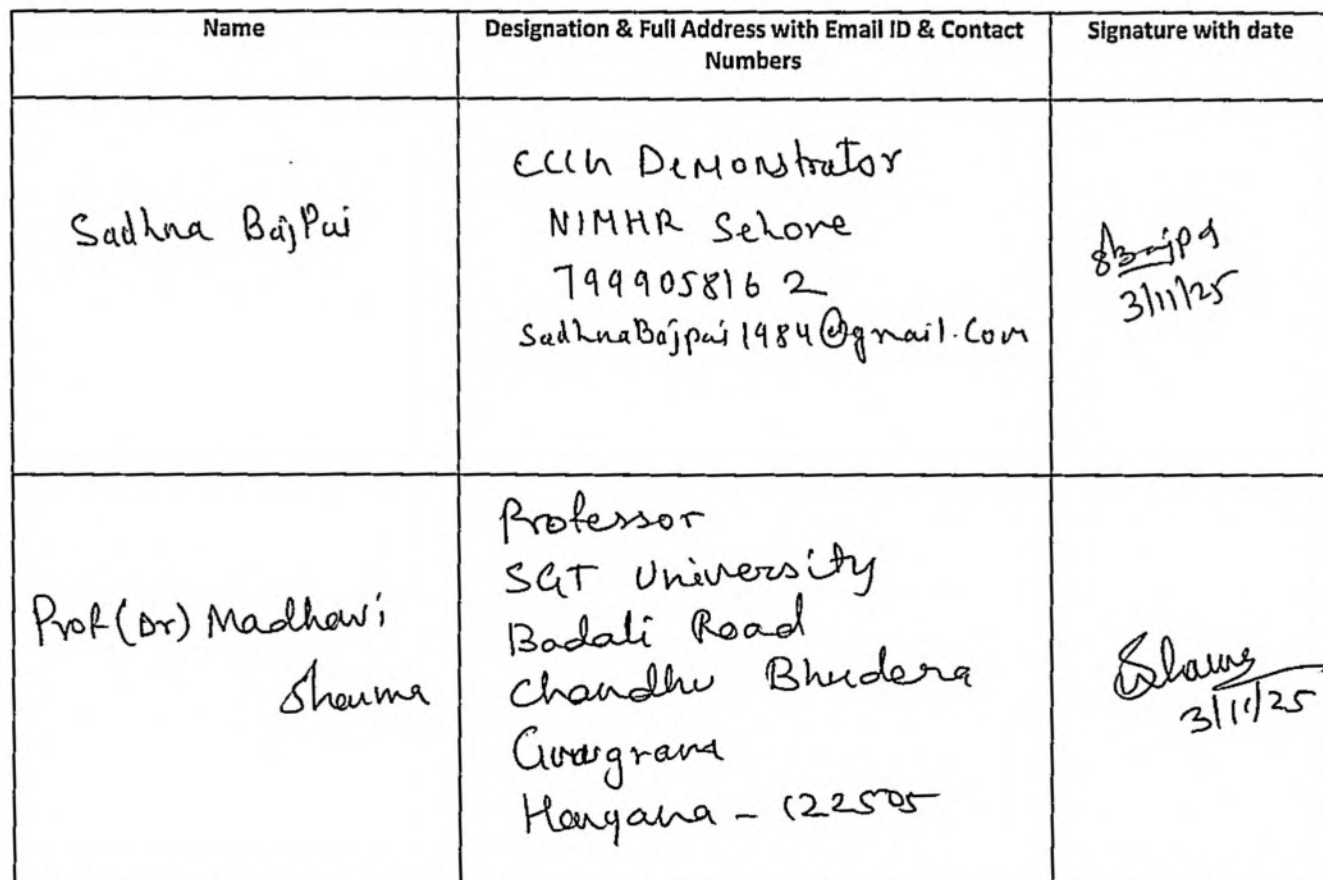 Name
Designation & Full Address with Email ID & Contact
Numbers
Signature with date
Sadhna BajPai
Demonstrator
NIMHR Sehore
7999058162
SadhnaBajpai1984@gmail.com
3/11/25
Prof (Dr) Madhavi
Sharma
Professor
SGT University
Badali Road
Chandhu Bhudera
Gurugram
Haryana - 122505
3/11/25